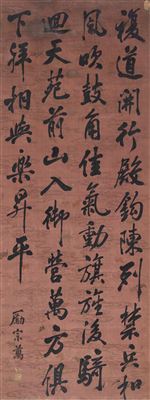 複道開行殿鉤陳列禁兵和
風吹鼓角佳氣動旗旌後騎
迴天苑前山入御營萬方俱
下拜相與樂昇平
勵宗萬